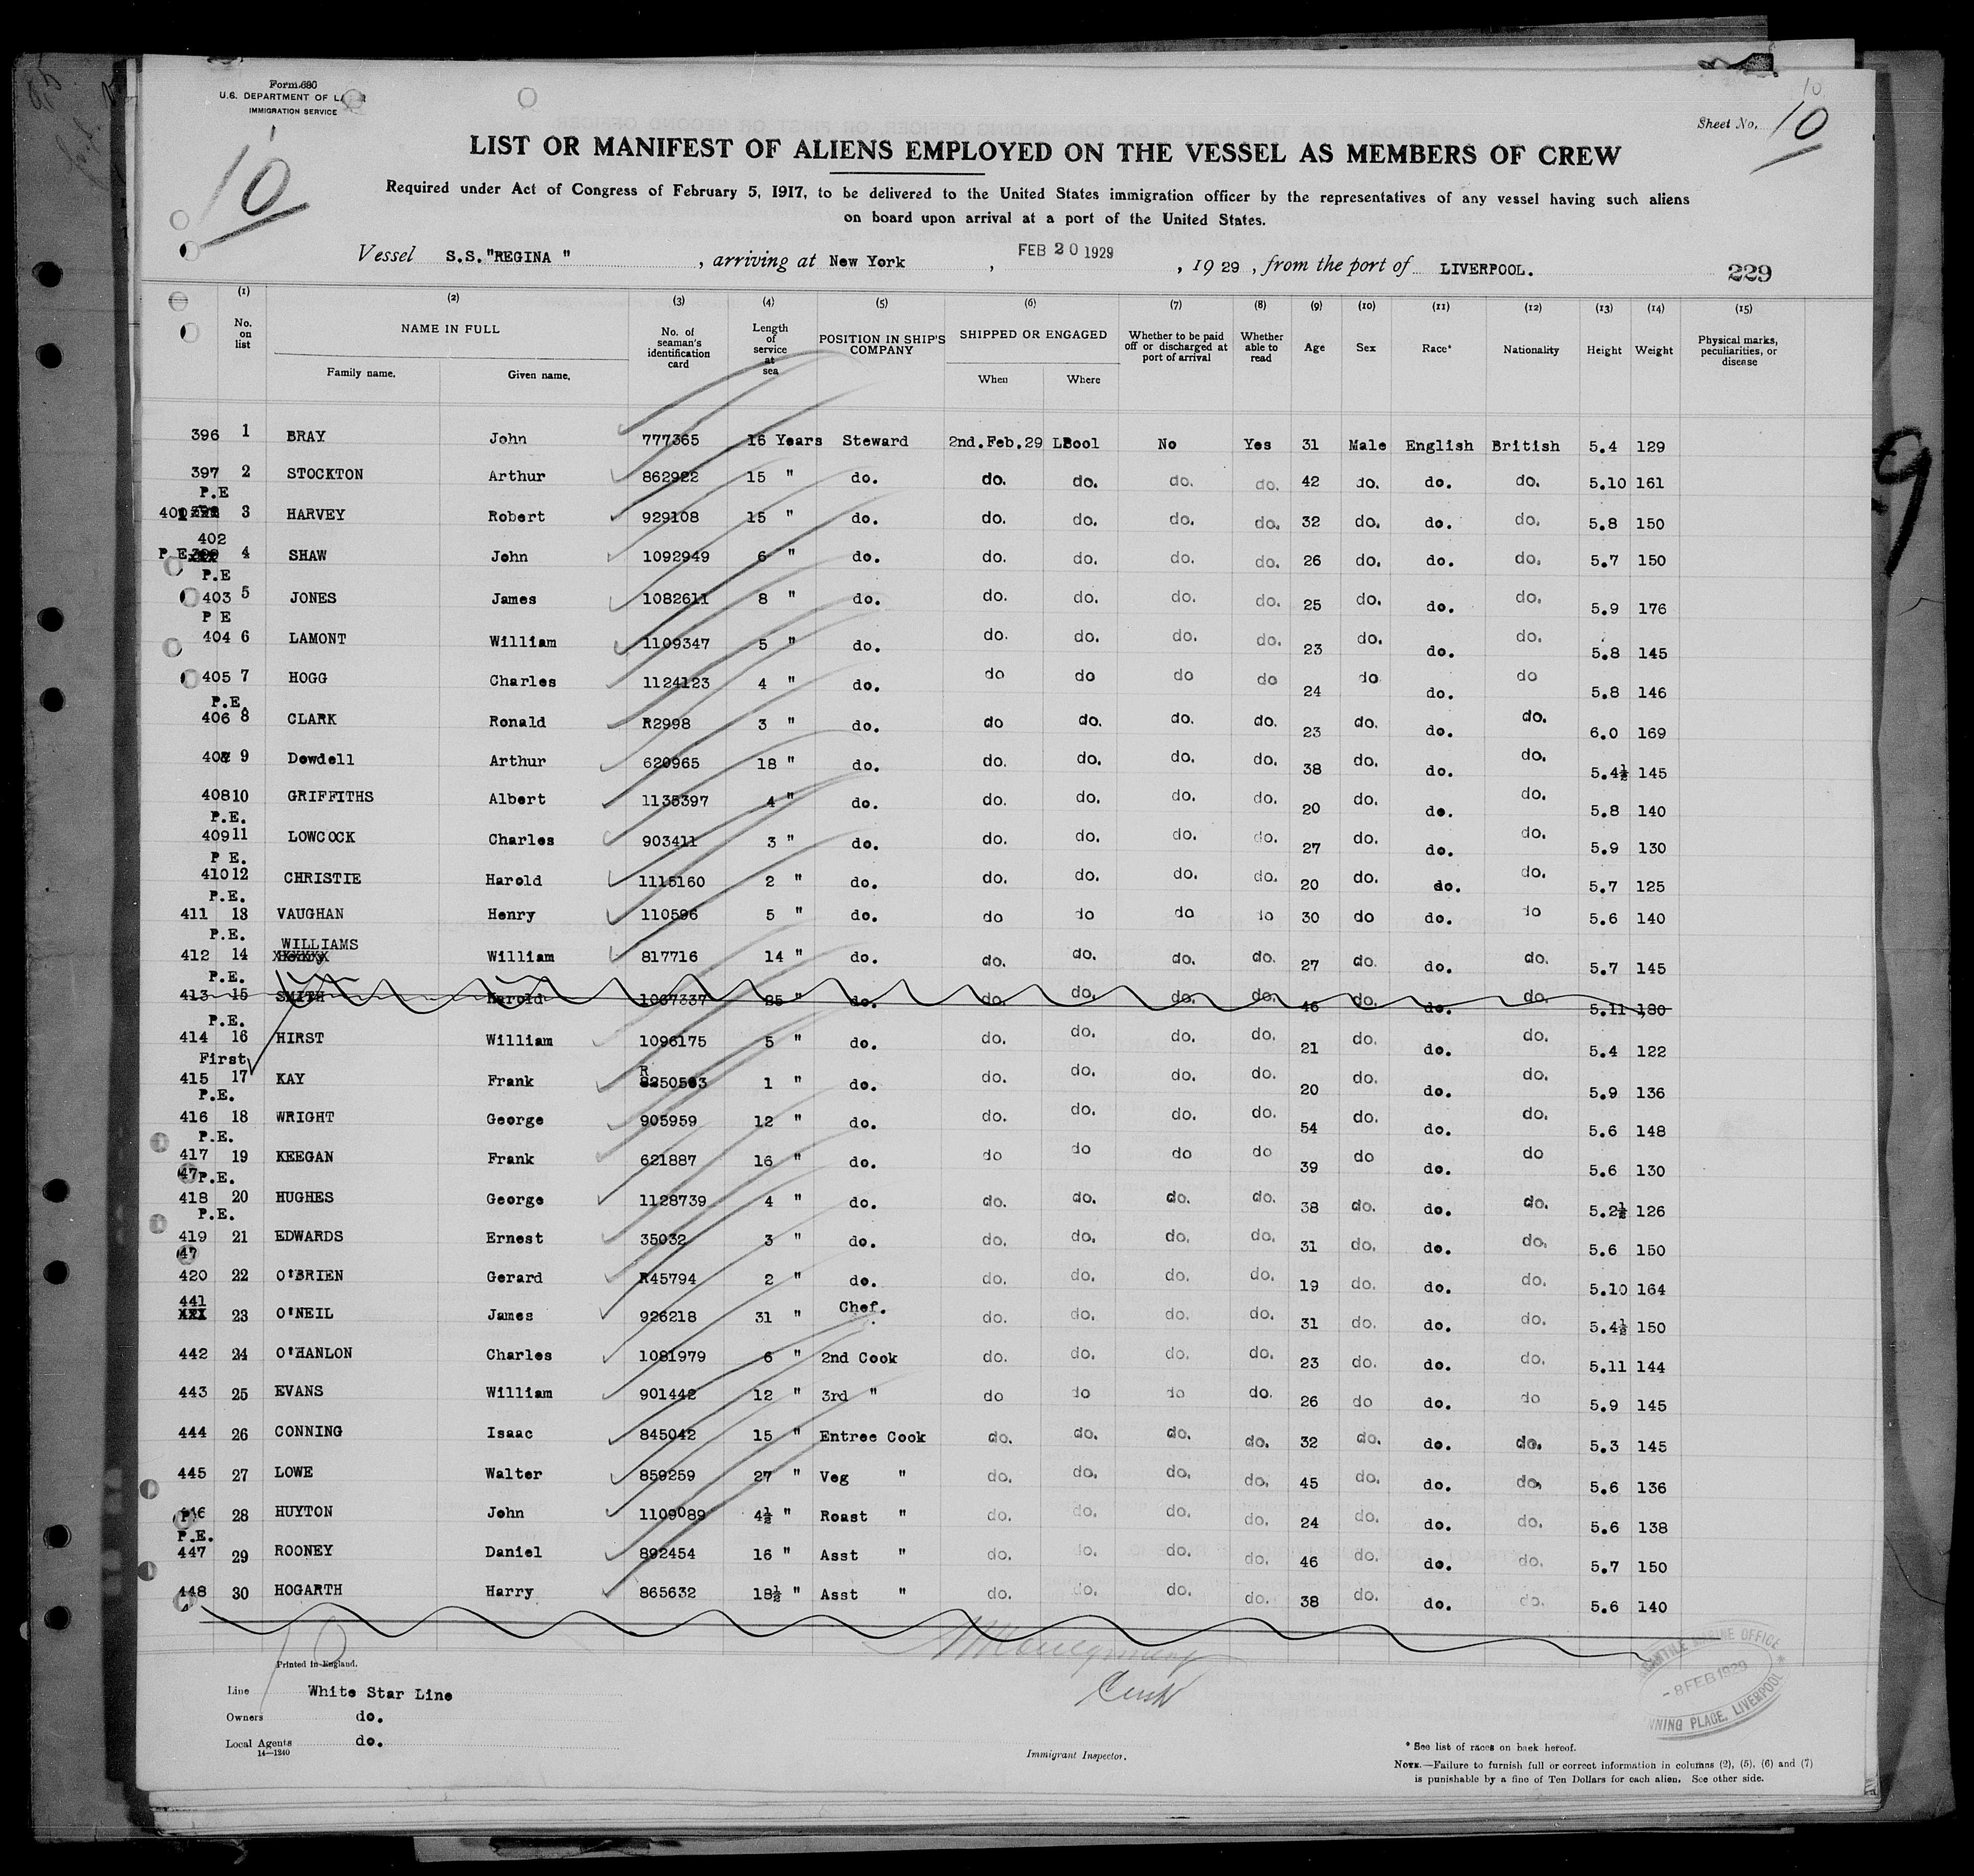 Form 680
U.S. DEPARTMENT OF LABOR
IMMIGRATION SERVICE
10
10
Sheet No. 10
LIST OR MANIFEST OF ALIENS EMPLOYED ON THE VESSEL AS MEMBERS OF CREW
Required under Act of Congress of February 5, 1917, to be delivered to the United States immigration officer by the representatives of any vessel having such aliens
on board upon arrival at a port of the United States.
Vessel S.S."REGINA ", arriving at New York, FEB 20 1929, 1929, from the port of LIVERPOOL. 229
(1) (2) (3) (4) (5) (6) (7) (8) (9) (10) (11) (12) (13) (14) (15)
No. on list NAME IN FULL Family name. Given name. No. of seaman's identification card Length of service at sea POSITION IN SHIP'S COMPANY SHIPPED OR ENGAGED When Where Whether to be paid off or discharged at port of arrival Whether able to read Age Sex Race* Nationality Height Weight Physical marks, peculiarities, or disease
396 1 BRAY John 777365 16 Years Steward 2nd.Feb.29 LPool No Yes 31 Male English British 5.4 129
397 2 STOCKTON Arthur 862922 15 " do. do. do. do. do. 42 do. do. do. 5.10 161
P.E
401 3 HARVEY Robert 929108 15 " do. do. do. do. do. 32 do. do. do. 5.8 150
402
P.E. 4 SHAW John 1092949 6 " do. do. do. do. do. 26 do. do. do. 5.7 150
P.E
403 5 JONES James 1082611 8 " do. do. do. do. do. 25 do. do. do. 5.9 176
P E
404 6 LAMONT William 1109347 5 " do. do. do. do. do. 23 do. do. do. 5.8 145
405 7 HOGG Charles 1124123 4 " do. do do do do 24 do do. do 5.8 146
P.E.
406 8 CLARK Ronald R2998 3 " do. do do. do. do. 23 do. do. do. 6.0 169
407 9 Dowdell Arthur 620965 18 " do. do. do. do. do. 38 do. do. do. 5.4½ 145
408 10 GRIFFITHS Albert 1135397 4 " do. do. do. do. do. 20 do. do. do. 5.8 140
P.E.
409 11 LOWCOCK Charles 903411 3 " do. do. do. do. do. 27 do. do. do. 5.9 130
P E.
410 12 CHRISTIE Harold 1115160 2 " do. do. do. do. do. 20 do. do. do. 5.7 125
P.E.
411 13 VAUGHAN Henry 110596 5 " do. do do do do 30 do do. do 5.6 140
P.E.
412 14 WILLIAMS William 817716 14 " do. do. do. do. do. 27 do. do. do. 5.7 145
P.E.
413 15 SMITH Harold 1067337 25 " do. do. do. do. do. 46 do. do. do. 5.11 180
P.E.
414 16 HIRST William 1096175 5 " do. do. do. do. do. 21 do. do. do. 5.4 122
First
415 17 KAY Frank R 250503 1 " do. do. do. do. do. 20 do. do. do. 5.9 136
P.E.
416 18 WRIGHT George 905959 12 " do. do. do. do. do. 54 do. do. do. 5.6 148
P.E.
417 19 KEEGAN Frank 621887 16 " do. do do do do 39 do do. do 5.6 130
47 P.E.
418 20 HUGHES George 1128739 4 " do. do. do. do. do. 38 do. do. do. 5.2½ 126
P.E.
419 21 EDWARDS Ernest 35032 3 " do. do. do. do. do. 31 do. do. do. 5.6 150
47
420 22 O'BRIEN Gerard R45794 2 " do. do. do. do. do. 19 do. do. do. 5.10 164
441
23 O'NEIL James 926218 31 " Chef. do. do. do. do. 31 do. do. do. 5.4½ 150
442 24 O'HANLON Charles 1081979 6 " 2nd Cook do. do. do. do. 23 do. do. do. 5.11 144
443 25 EVANS William 901442 12 " 3rd " do do do do. 26 do do. do 5.9 145
444 26 CONNING Isaac 845042 15 " Entree Cook do. do. do. do. 32 do. do. do. 5.3 145
445 27 LOWE Walter 859259 27 " Veg " do. do. do. do. 45 do. do. do. 5.6 136
446 28 HUYTON John 1109089 4½ " Roast " do. do. do. do. 24 do. do. do. 5.6 138
P.E.
447 29 ROONEY Daniel 892454 16 " Asst " do. do. do. do. 46 do. do. do. 5.7 150
448 30 HOGARTH Harry 865632 18½ " Asst " do. do. do. do. 38 do. do. do. 5.6 140
10
Printed in England.
Line White Star Line
Owners do.
Local Agents do.
14—1240
Immigrant Inspector.
MARINE OFFICE
-8 FEB 1929
NNING PLACE, LIVERPOOL
* See list of races on back hereof.
NOTE.—Failure to furnish full or correct information in columns (2), (5), (6) and (7)
is punishable by a fine of Ten Dollars for each alien. See other side.
9